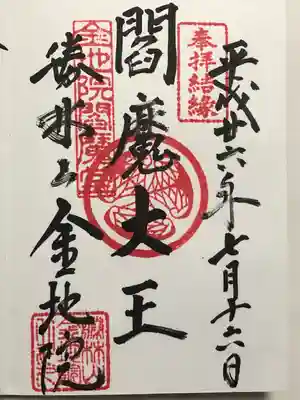 奉拝結縁
平成廿六年七月十六日
閻魔大王
金地院閻魔堂
勝林山金地院